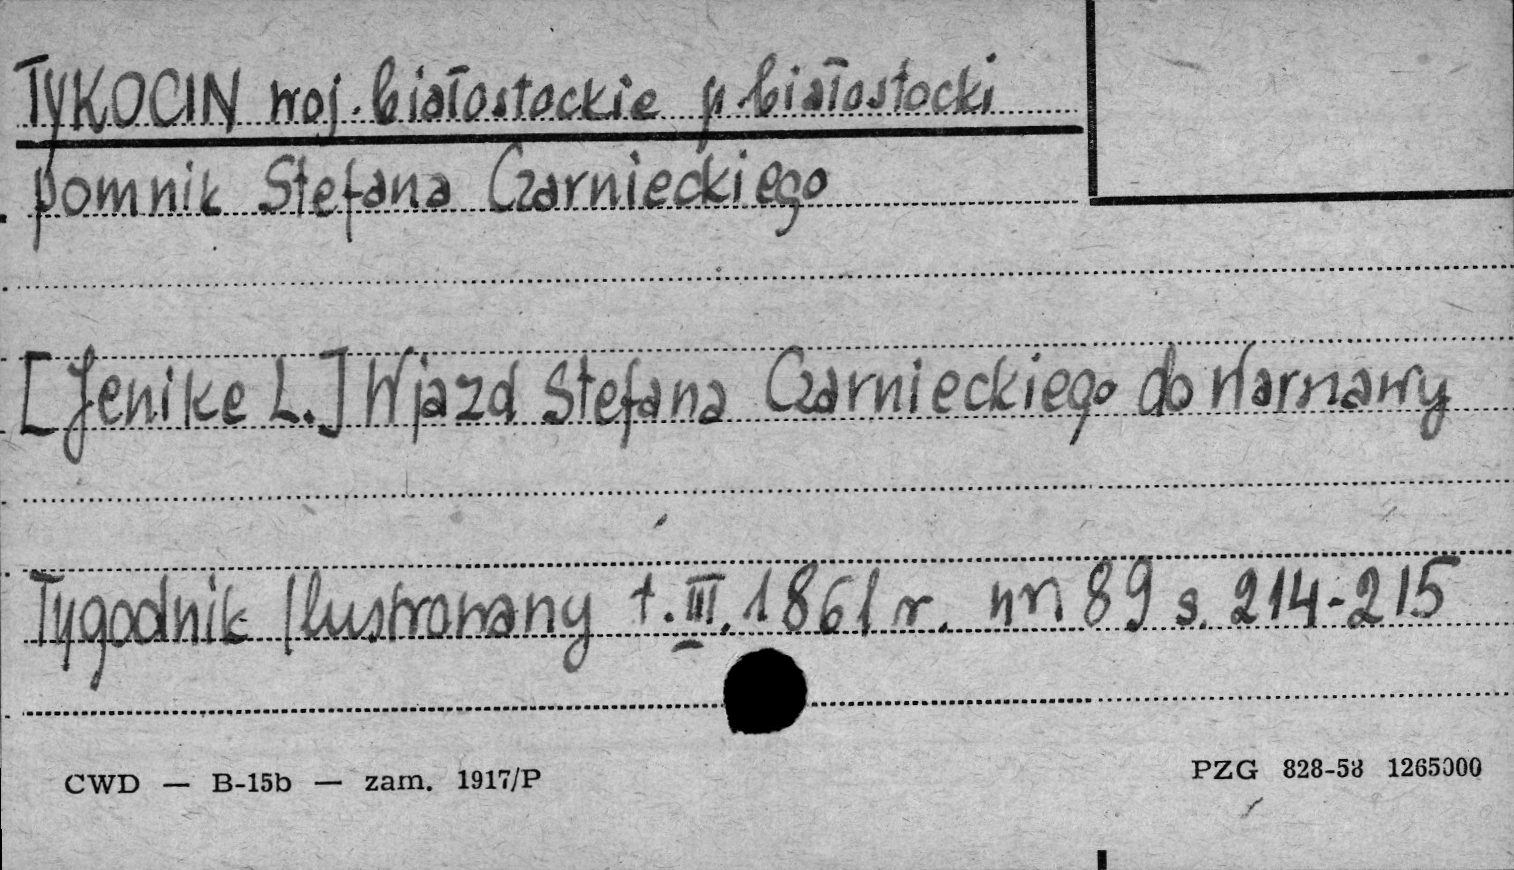 TYKOCIN woj. białostockie p. białostocki
pomnik Stefana Czarnieckiego
[Jenike L.] Wjazd Stefana Czarnieckiego do Warszawy
Tygodnik Ilustrowany t. III. 1861 r. nr 89 s. 214-215
CWD — B-15b — zam. 1917/P
PZG 828-58 1265000